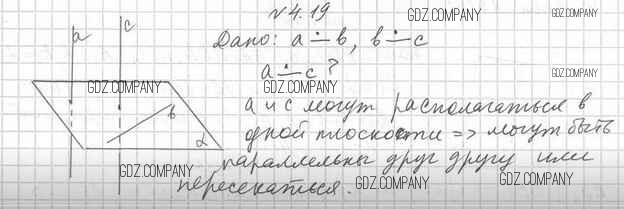 №4.19
Дано: a ∸ b, b ∸ c
a ∸ c ?
a и c могут располагаться в
одной плоскости => могут быть
параллельны друг другу или
пересекаться.
a
c
b
α
GDZ.COMPANY
GDZ.COMPANY
GDZ.COMPANY
GDZ.COMPANY
GDZ.COMPANY
GDZ.COMPANY
GDZ.COMPANY
GDZ.COMPANY